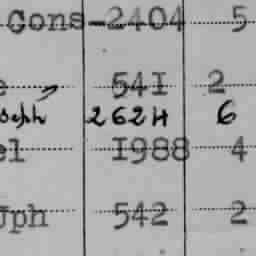 Gons-2404 5
e 541 2
oseph 262H 6
el 1988 4
Jph 542 2